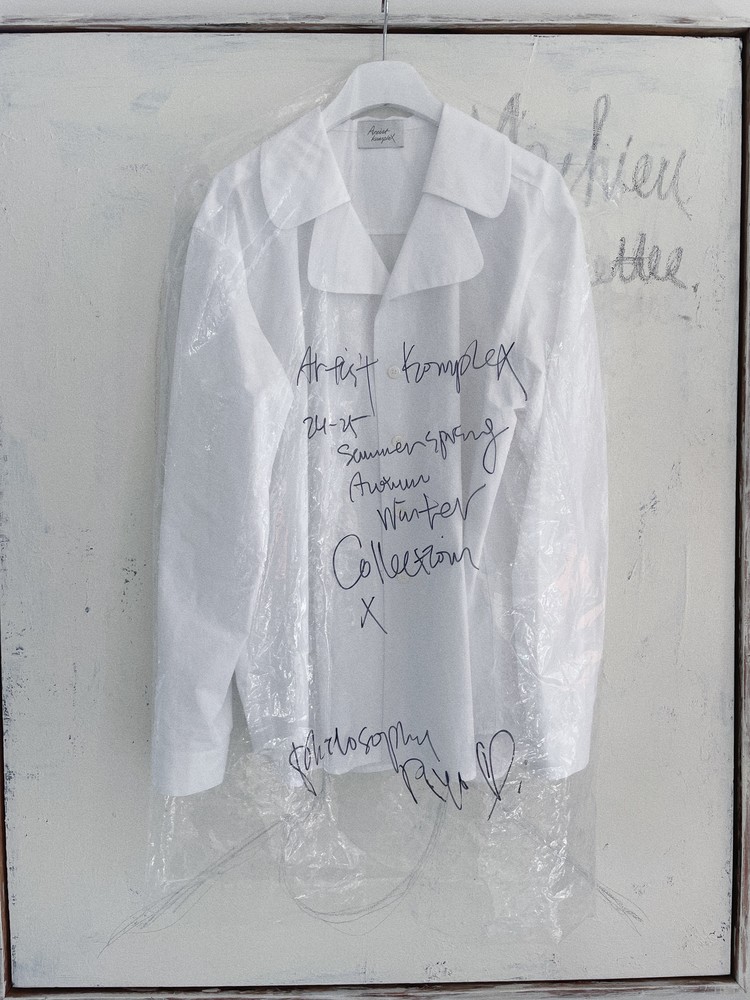 Artist
Komplex
Artist Komplex
24-25
Summer Spring
Autumn
Winter
Collection
X
philosophy